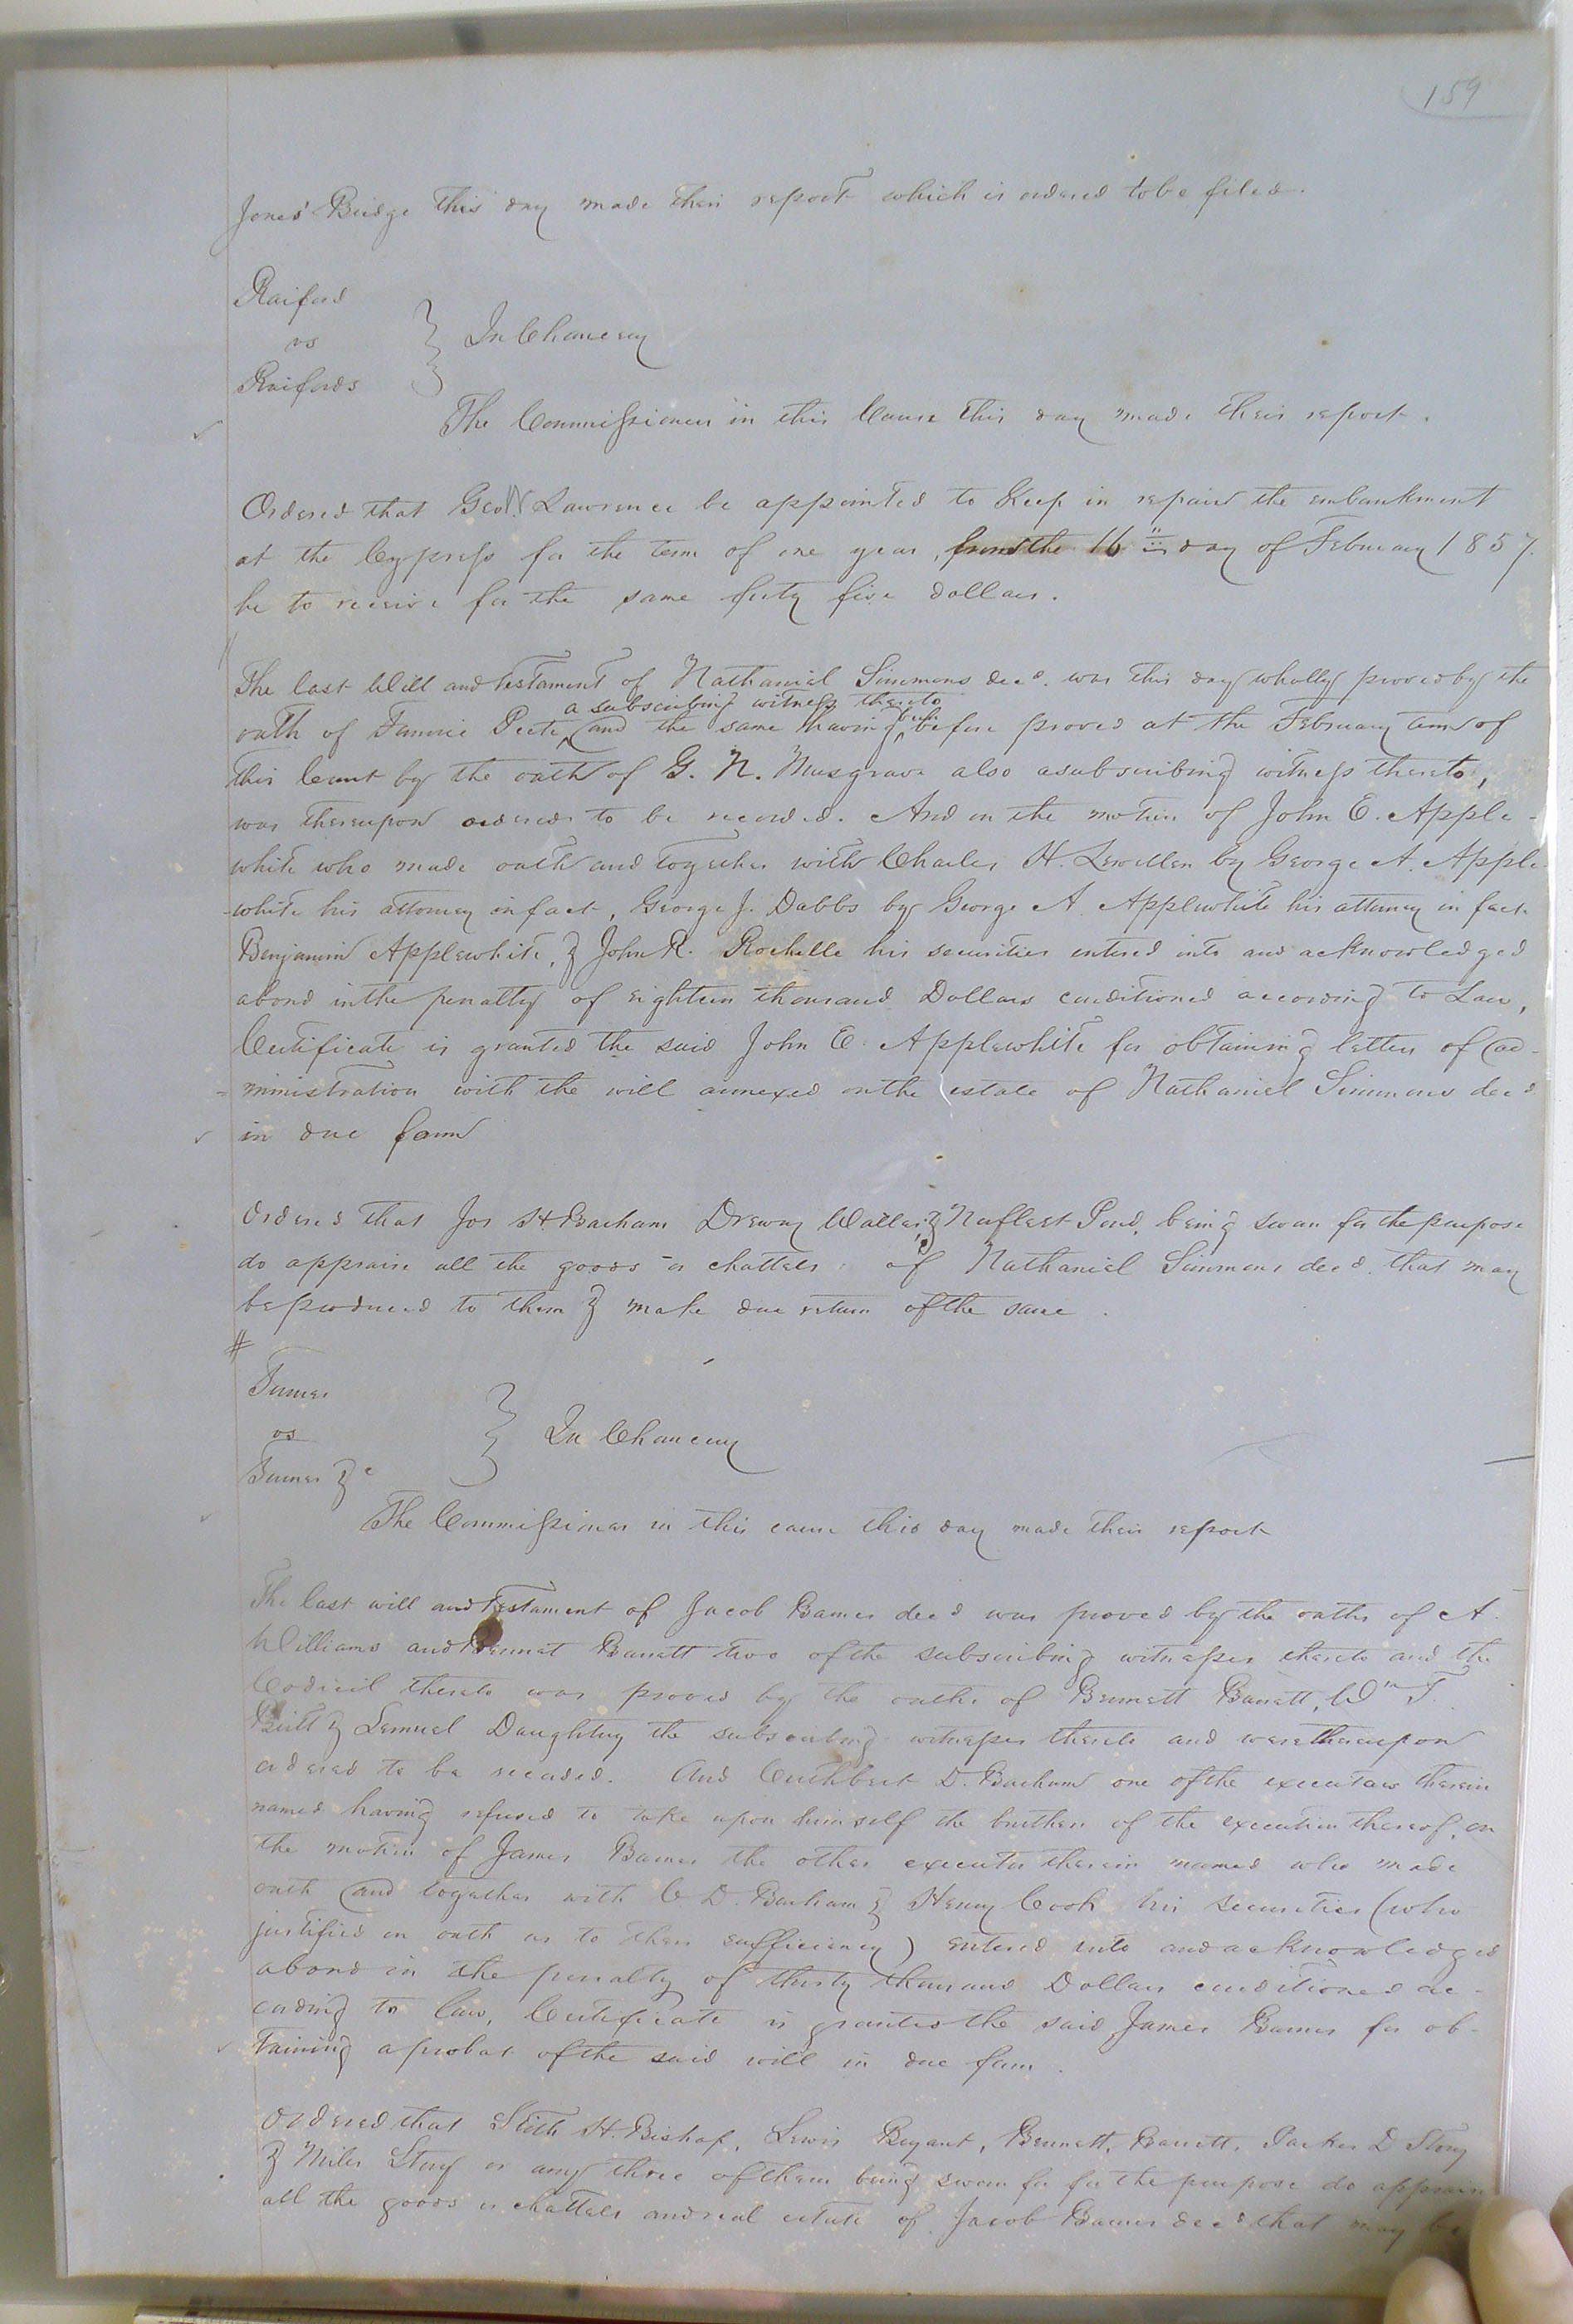 159
Jones' Bridge this day made their report which is ordered to be filed.
Raiford
vs
Raifords
In Chancery
The Commissioners in this Cause this day made their report.
Ordered that Geo W. Lawrence be appointed to Keep in repair the embankment
at the Cypress for the term of one year, from the 16th day of February 1857.
he to receive for the same forty five dollars.
The last Will and testament of Nathaniel Simmons decd. was this day wholly proved by the
a subscribing witness thereto
oath of Fannie Peete, and the same having been before proved at the February term of
this Court by the oath of G. N. Musgrave also a subscribing witness thereto,
was thereupon ordered to be recorded. And on the motion of John E. Apple-
white who made oath and together with Charles H. Lewellen by George A. Apple-
-white his attorney in fact, George J. Dabbs by George A Applewhite his attorney in fact
Benjamin Applewhite, & John R. Rochelle his securities entered into and acknowledged
a bond in the penalty of eighteen thousand Dollars conditioned according to Law,
Certificate is granted the said John E. Applewhite for obtaining letters of ad-
-ministration with the will annexed on the estate of Nathaniel Simmons decd
in due form
Ordered that Jos H. Barham Drewry Waller, & Norfleet Pond, being sworn for the purpose
do appraise all the goods & chattels of Nathaniel Simmons decd. that may
be produced to them & make due return of the same.
#
Turner
vs
Turner &c
In Chancery
The Commissioners in this cause this day made their report
The last will and testament of Jacob Barnes decd was proved by the oaths of A.
Williams and Bennet Barrett two of the subscribing witnesses thereto and the
Codicil thereto was proved by the oaths of Bennett Barrett, Wm T.
Britt & Lemuel Daughtry the subscribing witnesses thereto and were thereupon
ordered to be recorded. And Cuthbert D. Barham one of the executors therein
named having refused to take upon himself the burthen of the execution thereof, on
the motion of James Barnes the other executor therein named who made
oath and together with C. D. Barham & Henry Cook his securities (who
justified on oath as to their sufficiency) entered into and acknowledged
a bond in the penalty of thirty thousand Dollars conditioned ac-
cording to law, Certificate is granted the said James Barnes for ob-
taining a probat of the said will in due form.
Ordered that Stith H. Bishop, Lewis Bryant, Bennett Barrett, Parker D Story
& Miles Story or any three of them being sworn for for the purpose do appraise
all the goods & chattels and real estate of Jacob Barnes decd that may be